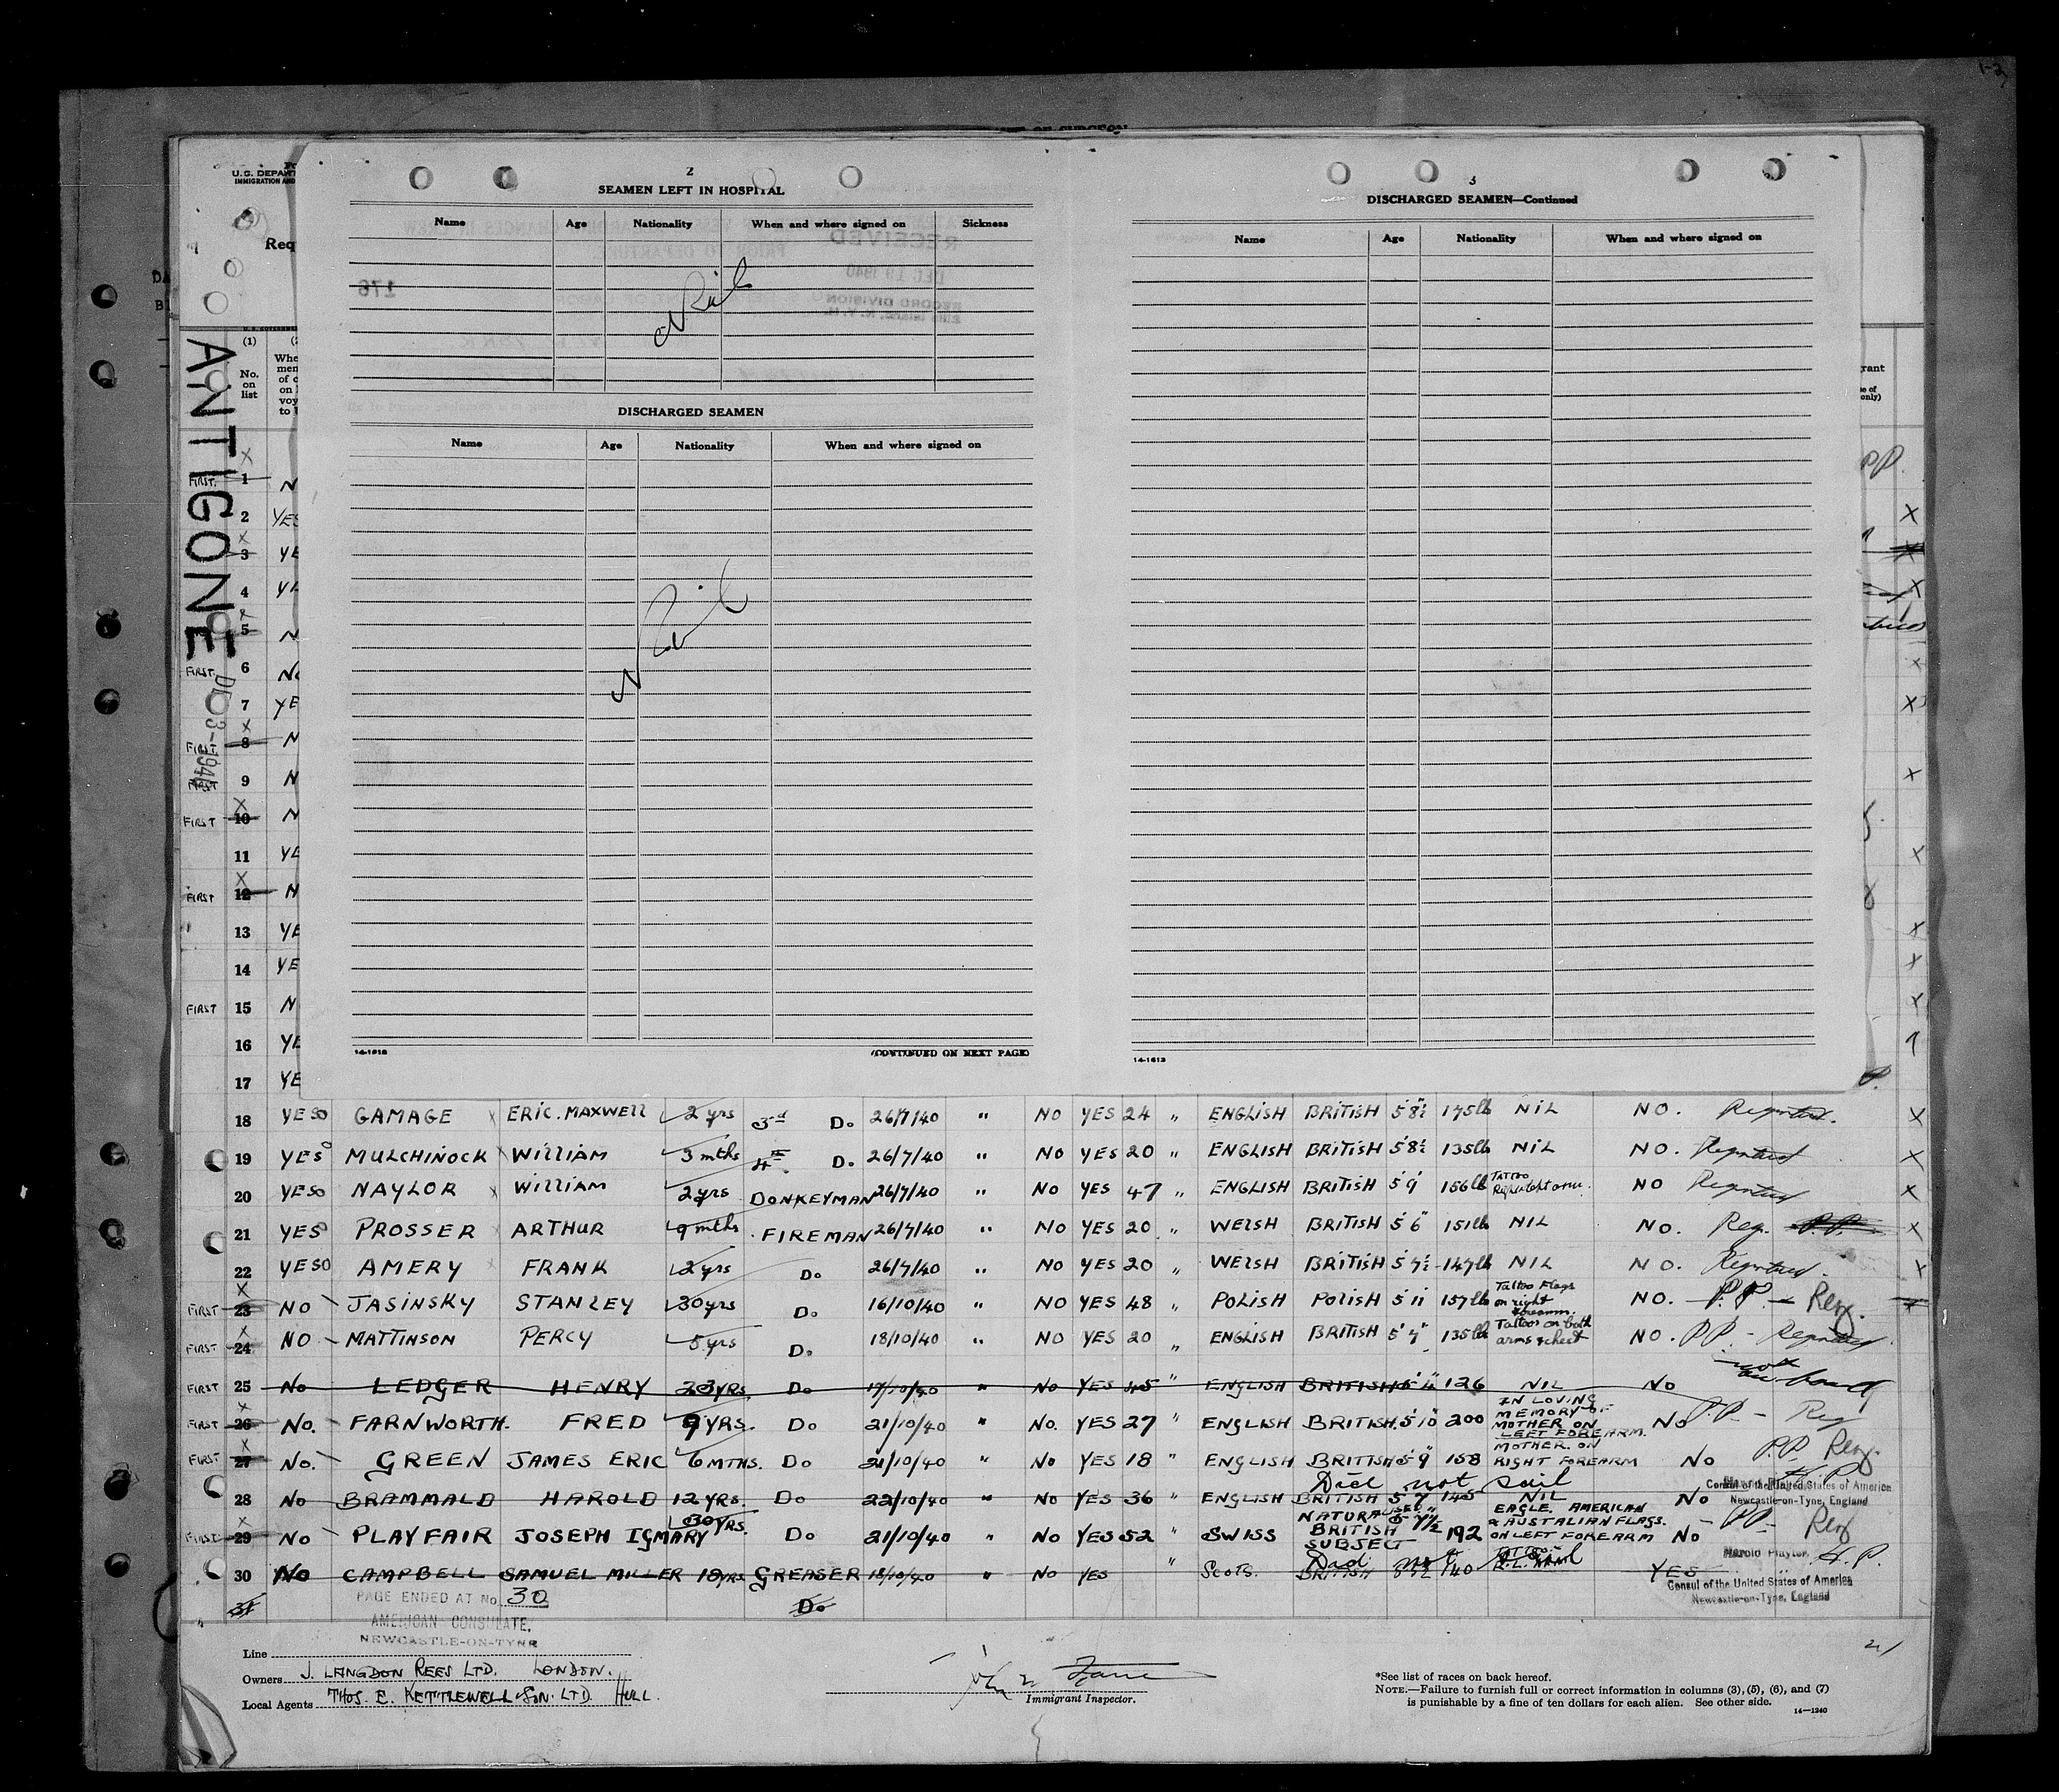 2
SEAMEN LEFT IN HOSPITAL
Name Age Nationality When and where signed on Sickness
Nil
DISCHARGED SEAMEN
Name Age Nationality When and where signed on
Nil
14-1613 (CONTINUED ON NEXT PAGE)
3
DISCHARGED SEAMEN—Continued
Name Age Nationality When and where signed on
14-1613
ANTIGONE
U.S. DEPART
IMMIGRATION AND
Req
(1)
No. on list
Whe
men
of c
on
voy
to
FIRST 1 N
2 YES
3 YE
4
5 N
FIRST 6 No
7 YE
FIRST 8 N
FIRST 9 N
FIRST 10 N
11 YE
FIRST 12 N
13 YE
14 YE
FIRST 15 N
16 YE
17 YE
18 YES GAMAGE ERIC. MAXWELL 2 yrs 3rd Do 26/7/40 " NO YES 24 " ENGLISH BRITISH 5'8½ 175lb NIL NO. Reported.
19 YES MULCHINOCK WILLIAM 3 mths 4th Do 26/7/40 " NO YES 20 " ENGLISH BRITISH 5'8½ 135lb NIL NO. Reported
20 YES NAYLOR WILLIAM 2 yrs DONKEYMAN 26/7/40 " NO YES 47 " ENGLISH BRITISH 5'9" 156lb TATTOO Right arm. NO Reported
21 YES PROSSER ARTHUR 9 mths FIREMAN 26/7/40 " NO YES 20 " WELSH BRITISH 5'6" 151lb NIL NO. Reg. P.P.
22 YES AMERY FRANK 2 yrs Do 26/7/40 " NO YES 20 " WELSH BRITISH 5'7½ 147lb NIL NO. Reported.
FIRST 23 NO JASINSKY STANLEY 30 yrs Do 16/10/40 " NO YES 48 " POLISH POLISH 5'11 157lb Tattoo Flags on right forearm. NO. P.P. - Reg.
FIRST 24 NO MATTINSON PERCY 5 yrs Do 18/10/40 " NO YES 20 " ENGLISH BRITISH 5'7" 135lb Tattoos on both arms & chest NO. P.P. - Reported
not on board
FIRST 25 No LEDGER HENRY 23 YRS Do 19/10/40 " No YES 45 " ENGLISH BRITISH 126 NIL No
FIRST 26 No. FARNWORTH. FRED 9 YRS. Do 21/10/40 " No. YES 27 " ENGLISH BRITISH. 5'10" 200 IN LOVING MEMORY OF MOTHER ON LEFT FOREARM. No P.P. - Reg
FIRST 27 No. GREEN JAMES ERIC 6 MTHS. Do 21/10/40 " No YES 18 " ENGLISH BRITISH 5'9" 158 MOTHER. ON RIGHT FOREARM No P.P. Reg.
Did not sail H.P.
Consul of the United States of America
Newcastle-on-Tyne, England
28 No BRAMMALD HAROLD 12 YRS. Do 22/10/40 " No YES 36 " ENGLISH BRITISH 5'7" 145 NIL No
FIRST 29 No PLAYFAIR JOSEPH IGMARY 30 YRS. Do 21/10/40 " No YES 52 " SWISS NATURALISED BRITISH SUBJECT 5'7½ 192 EAGLE, AMERICAN & AUSTRALIAN FLAGS. ON LEFT FOREARM No - PP - Reg
Did not sail Harold Playter, H.P.
30 No CAMPBELL SAMUEL MILLER 18 YRS GREASER 18/10/40 " No YES " Scots. BRITISH 140 YES
Consul of the United States of America
Newcastle-on-Tyne, England
31 Do
PAGE ENDED AT No. 30
AMERICAN CONSULATE,
NEWCASTLE-ON-TYNE
Line
Owners J. LANGDON REES LTD. LONDON.
Local Agents THOS. E. KETTLEWELL & SON. LTD HULL.
Immigrant Inspector.
*See list of races on back hereof.
NOTE.—Failure to furnish full or correct information in columns (3), (5), (6), and (7)
is punishable by a fine of ten dollars for each alien. See other side.
14—1240